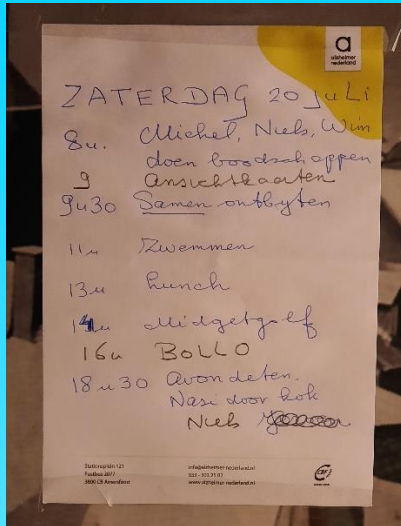 a
alzheimer
nederland
ZATERDAG 20 JULI
8u. Michel, Niels, Wim
doen boodschappen
9 Ansichtkaarten
9u30 Samen ontbyten
11u Zwemmen
13u Lunch
14u Midgetgolf
16u BOLLO
18u30 Avondeten.
Nasi door kok
Niels
Stationsplein 121
Postbus 2077
3800 CB Amersfoort
info@alzheimer-nederland.nl
www.alzheimer-nederland.nl